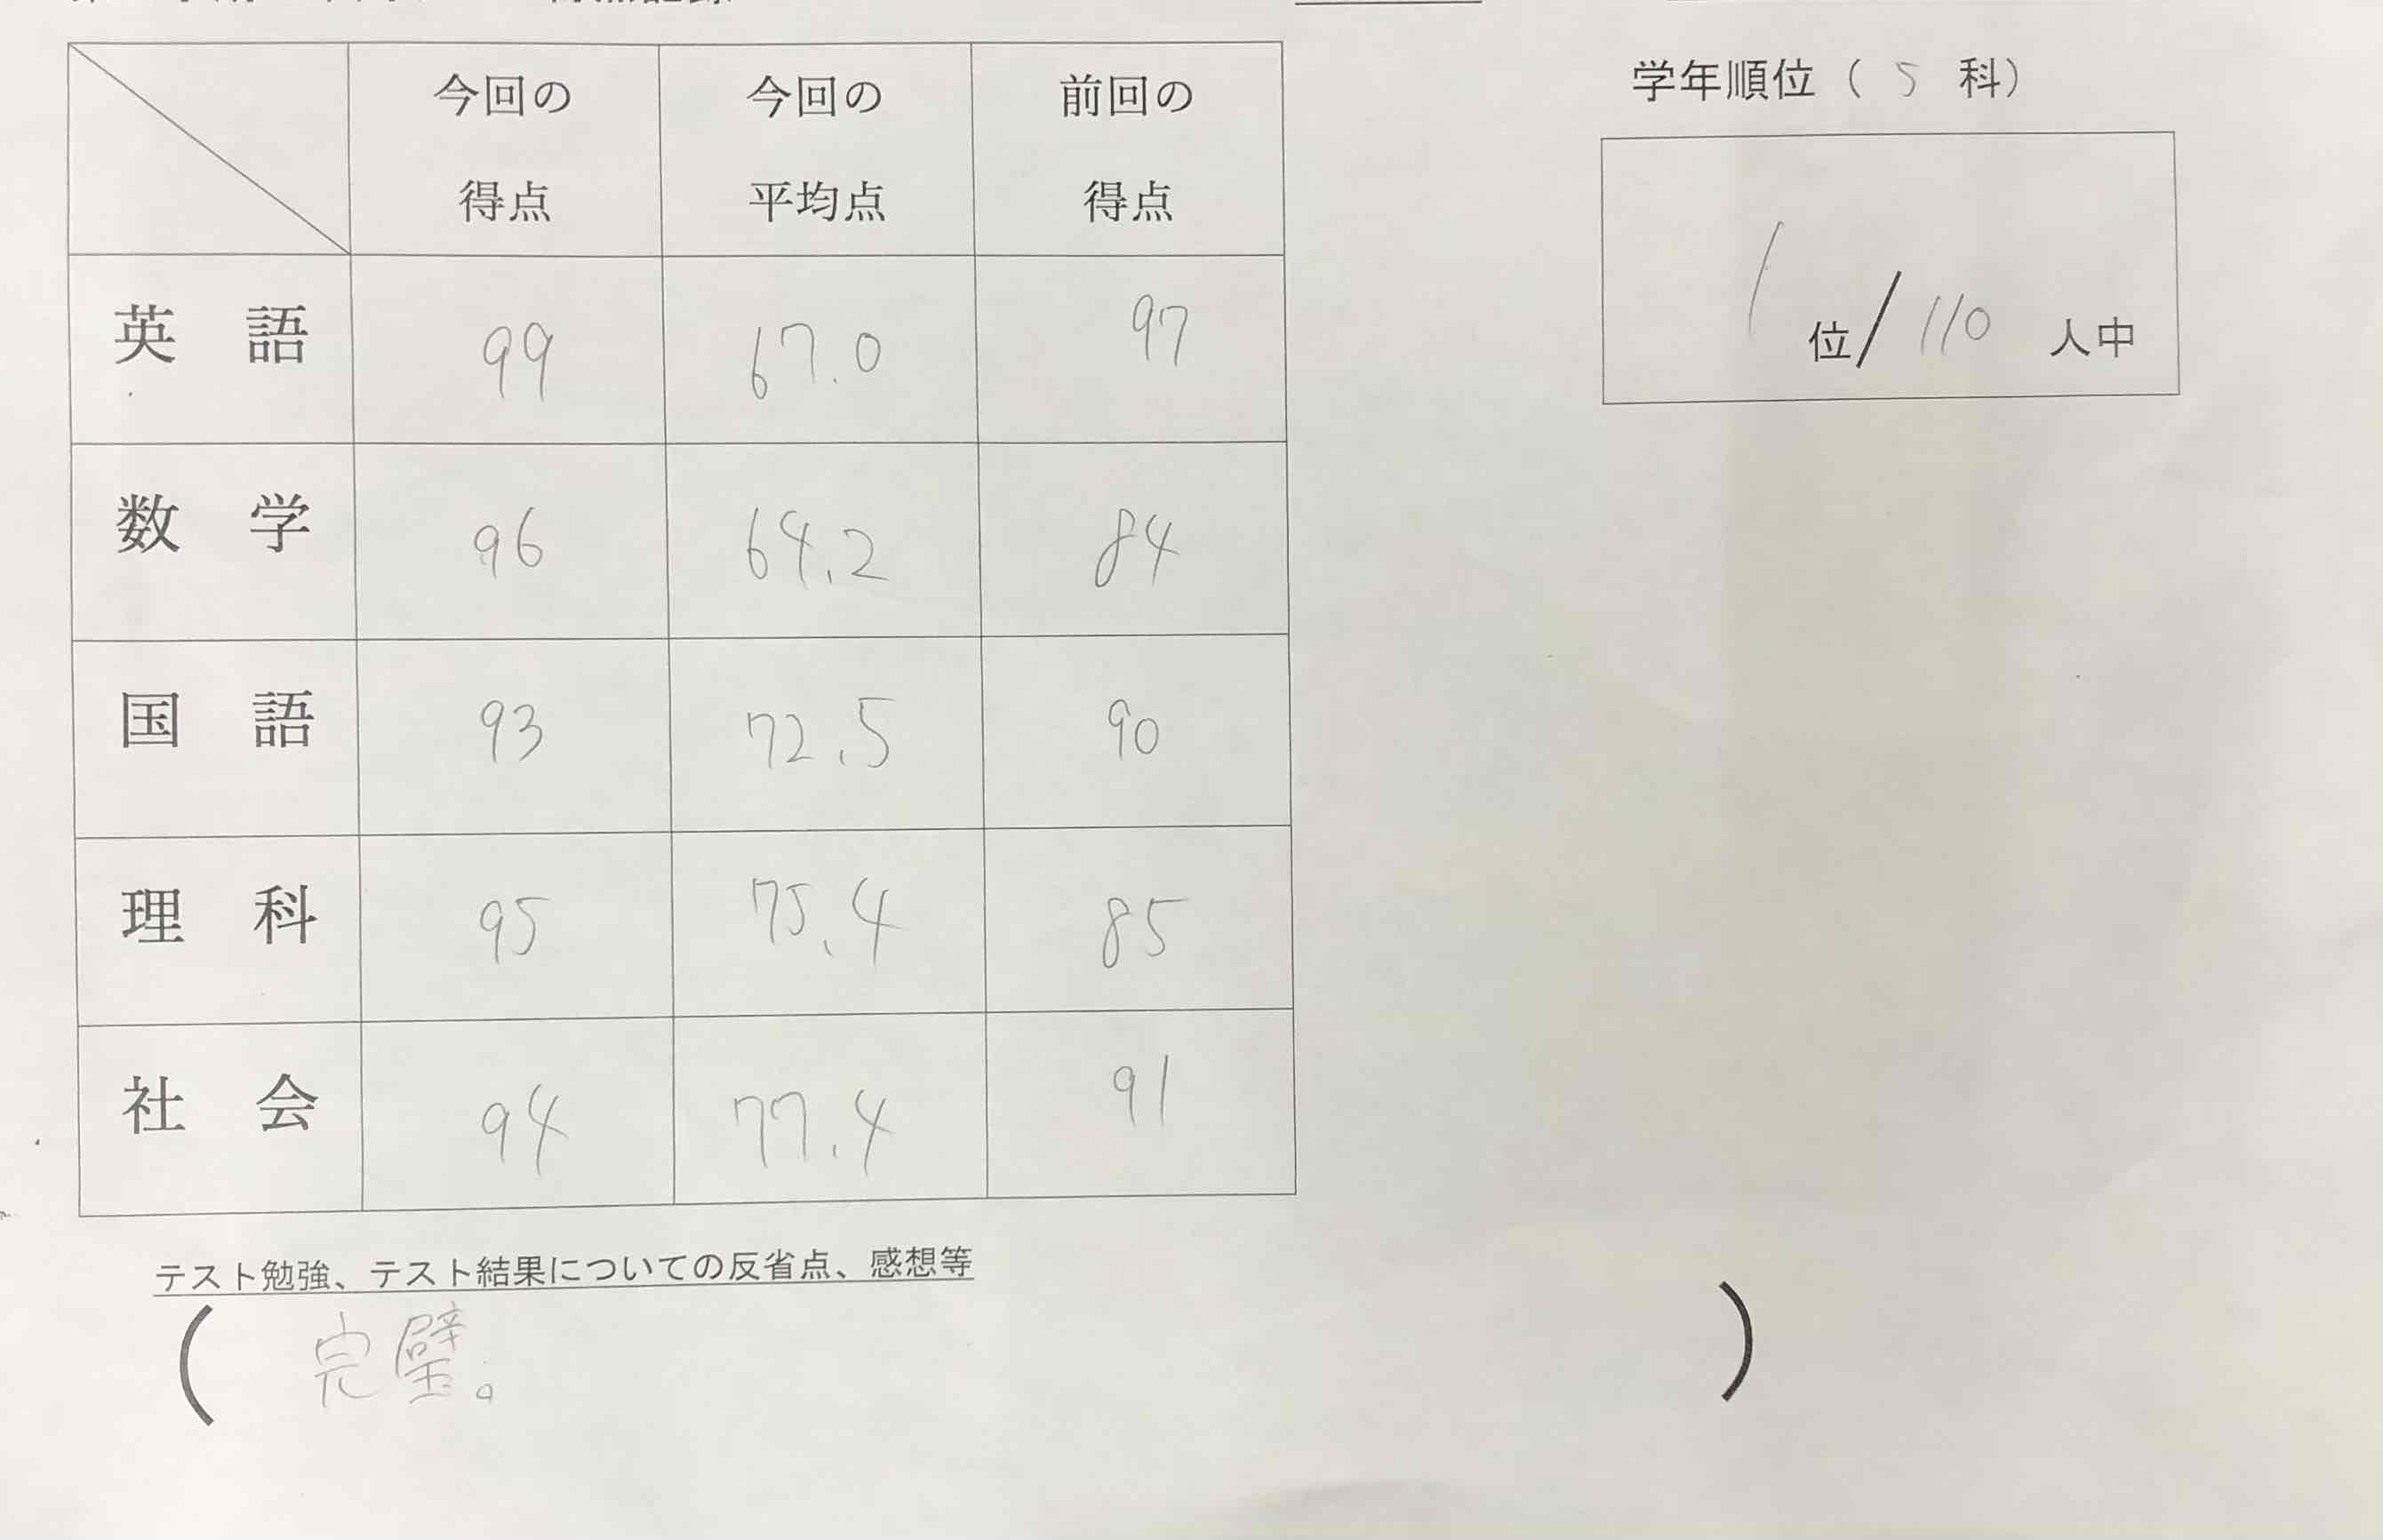 今回の 今回の 前回の
得点 平均点 得点
英語 99 67.0 97
数学 96 64.2 84
国語 93 72.5 90
理科 95 75.4 85
社会 94 77.4 91
学年順位（5科）
1位/110人中
テスト勉強、テスト結果についての反省点、感想等
(完璧。)